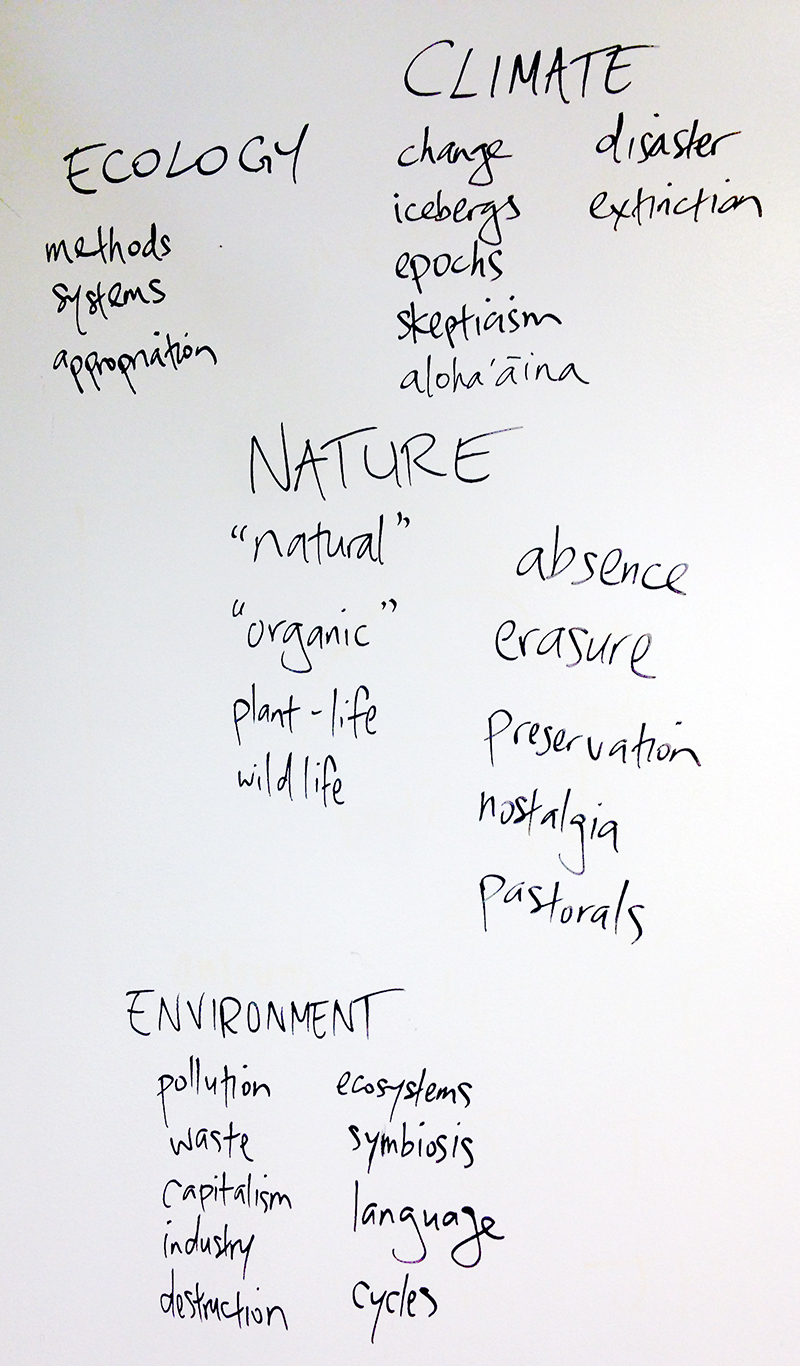 CLIMATE
change disaster
icebergs extinction
epochs
skepticism
aloha ʻāina
ECOLOGY
methods
systems
appropriation
NATURE
“natural”
“organic”
plant-life
wildlife
absence
erasure
preservation
nostalgia
pastorals
ENVIRONMENT
pollution
waste
capitalism
industry
destruction
ecosystems
symbiosis
language
cycles